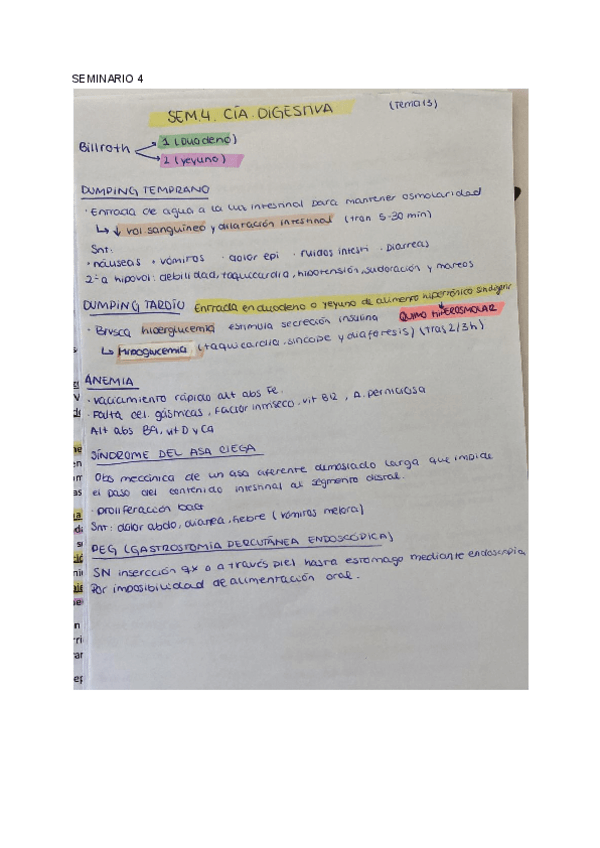 SEMINARIO 4
SEM.4. CÍA. DIGESTIVA (Tema 13)
Billroth
1 (Duodeno)
2 (yeyuno)
DUMPING TEMPRANO
· Entrada de agua a la luz intestinal para mantener osmolaridad
↳ ↓ vol sanguíneo y dilatación intestinal (tran 5-30 min)
Snt:
· náuseas · vómiros · dolor epi · ruidos intesti · Diarreas
2º a hipovol: debilidad, taquicardia, hipotensión, sudoración y mareos
DUMPING TARDÍO Entrada en duodeno o yeyuno de alimento hipertónico sin digerir
QUIMO HIPEROSMOLAR
· Brusca hiperglucemia estimula secreción insulina
↳ Hipoglucemia (taquicardia, sincope y diaforesis) (tras 2/3h)
ANEMIA
· Vaciamiento rápido alt abs Fe.
· Falta cel. gásmicas, Factor intríseco, vit B12, A. perniciosa
Alt abs BA, vit D y Ca
SÍNDROME DEL ASA CIEGA
Obs mecánica de un asa aferente demasiado larga que impide
el paso del contenido intestinal al segmento distal.
· proliferacción bact
Snt: dolor abdo, diarrea, fiebre (vómiros mejora)
PEG (GASTROSTOMÍA PERCUTÁNEA ENDOSCÓPICA)
SN insercción qx o a través piel hasta estomago mediante endoscopia
Por imposibilidad de alimentación oral.